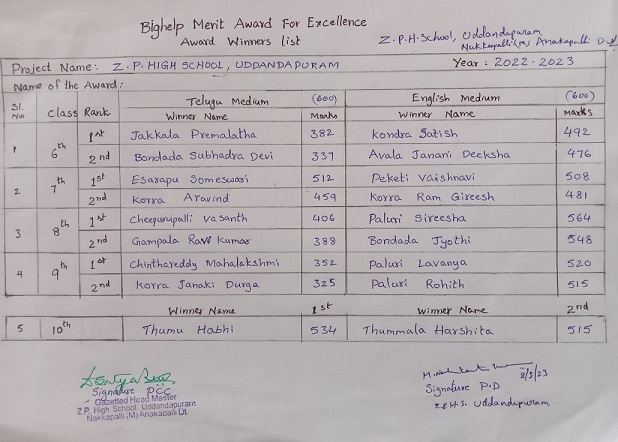 Bighelp Merit Award For Excellence
Award Winners List
Z.P.H.School, Uddandapuram,
Nakkapalli(M) Anakapalli Dt
Project Name: Z.P. HIGH SCHOOL, UDDANDAPURAM Year : 2022-2023
Name of the Award:
Sl. No Class Rank Telugu Medium (600) English Medium (600)
Winner Name Marks Winner Name Marks
1 6th 1st Jakkala Premalatha 382 Kondra Satish 492
2nd Bondada Subhadra Devi 337 Avala Janani Deeksha 476
2 7th 1st Esarapu Someswari 512 Peketi Vaishnavi 508
2nd Korra Aravind 459 Korra Ram Gireesh 481
3 8th 1st Cheepurupalli Vasanth 406 Paluri Sireesha 564
2nd Gampala Ravi Kumar 388 Bondada Jyothi 548
4 9th 1st Chinthareddy Mahalakshmi 352 Paluri Lavanya 520
2nd Korra Janaki Durga 325 Paluri Rohith 515
Winner Name 1st Winner Name 2nd
5 10th Thumu Habhi 534 Thummala Harshita 515
Signature PCC
Gazetted Head Master
Z.P. High School Uddandapuram
Nakkapalli (M) Anakapalli Dt
8/3/23
Signature P.D
Z.P.H.S. Uddandapuram